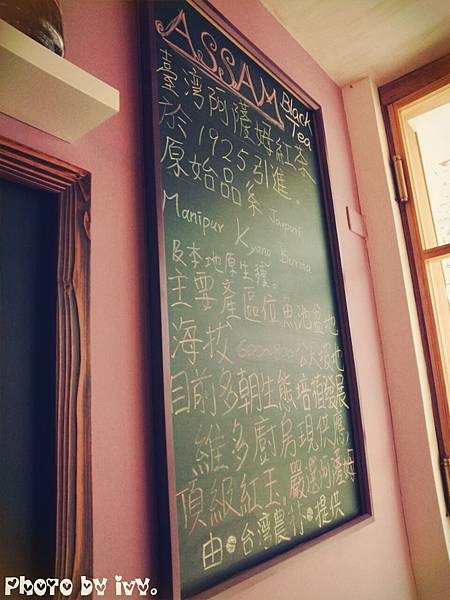 ASSAM
Black
Tea
臺灣阿薩姆紅茶
於1925引進。
原始品系 Jaipuri
Manipur Kyang Burma
及本地原生種。
主要產區位魚池盆地
海拔600~800公尺坡地
目前多朝生態培植發展
維多廚房現供應
頂級紅玉,嚴選阿薩姆
由 台灣農林 提供
Photo by ivy.